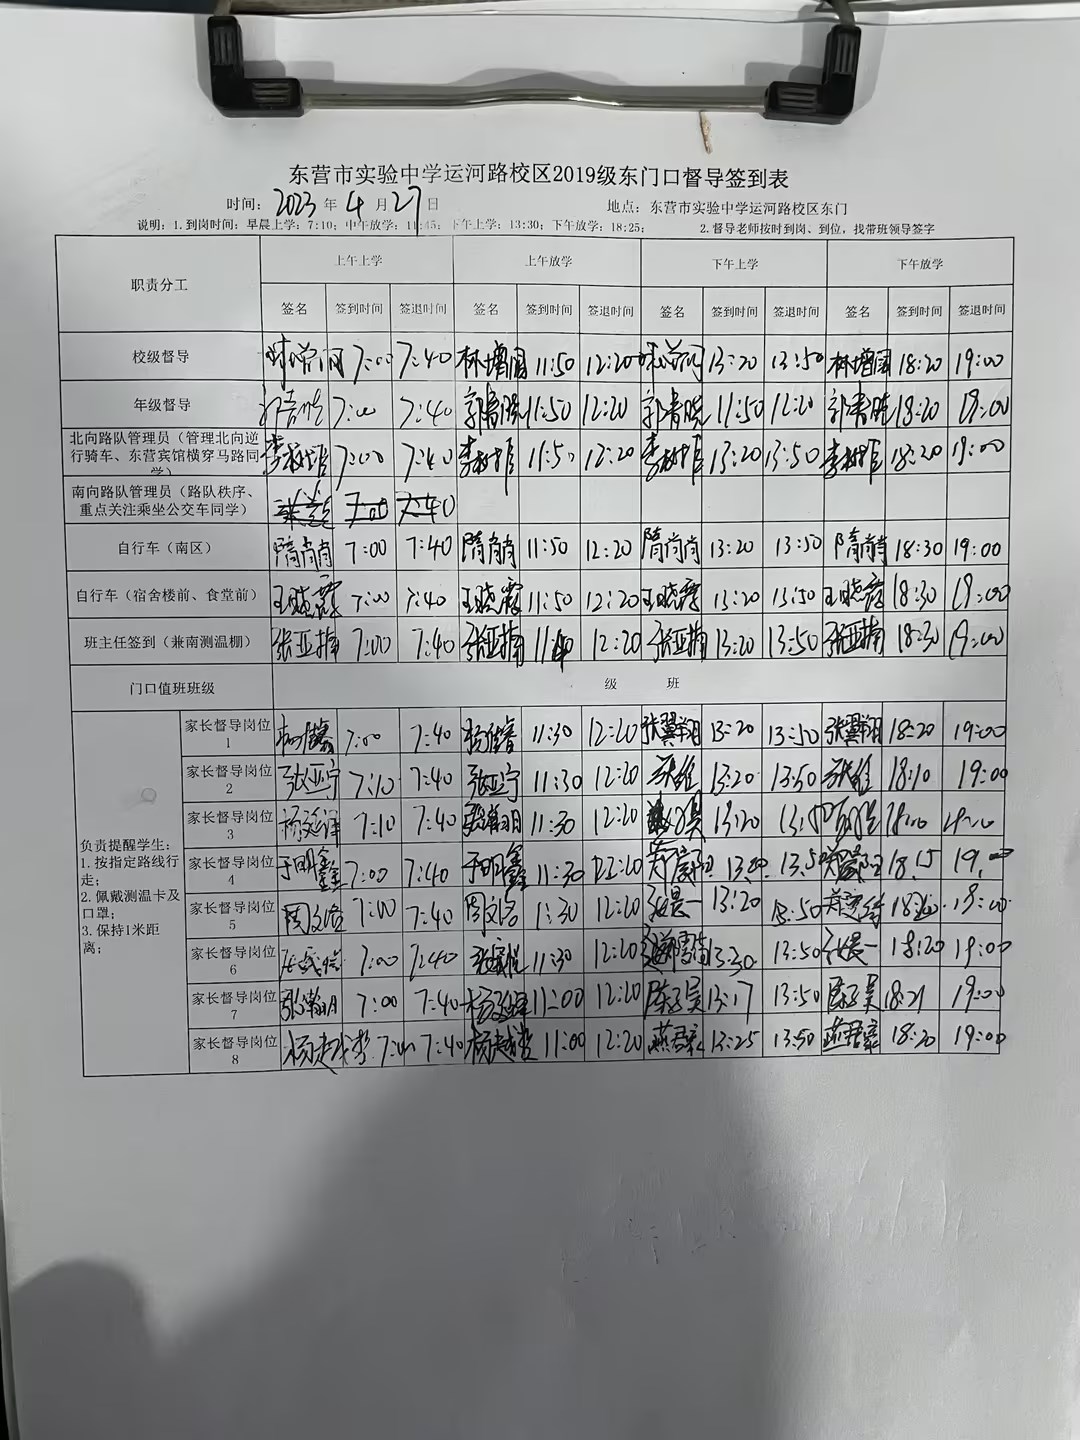 东营市实验中学运河路校区2019级东门口督导签到表
时间：2023年4月27日 地点：东营市实验中学运河路校区东门
说明：1.到岗时间：早晨上学：7:10；中午放学：11:45；下午上学：13:30；下午放学：18:25； 2.督导老师按时到岗、到位，找带班领导签字
职责分工 上午上学 上午放学 下午上学 下午放学
签名 签到时间 签退时间 签名 签到时间 签退时间 签名 签到时间 签退时间 签名 签到时间 签退时间
校级督导 7:00 7:40 林增国 11:50 12:20 13:20 13:50 林增国 18:20 19:00
年级督导 7:00 7:40 郭春晓 11:50 12:20 郭春晓 11:50 12:20 郭春晓 18:20 19:00
北向路队管理员（管理北向逆
行骑车、东营宾馆横穿马路同
学） 7:00 7:40 11:50 12:20 13:20 13:50 18:20 19:00
南向路队管理员（路队秩序、
重点关注乘坐公交车同学）
自行车（南区） 隋尚尚 7:00 7:40 隋尚尚 11:50 12:20 隋尚尚 13:20 13:50 隋尚尚 18:30 19:00
自行车（宿舍楼前、食堂前） 王晓霞 7:00 7:40 王晓霞 11:50 12:20 王晓霞 13:20 13:50 王晓霞 18:30 19:00
班主任签到（兼南测温棚） 张亚楠 7:00 7:40 张亚楠 12:20 张亚楠 13:20 13:50 张亚楠 18:30 19:00
门口值班班级 级 班
负责提醒学生：
1.按指定路线行
走；
2.佩戴测温卡及
口罩；
3.保持1米距
离；
家长督导岗位
1 7:00 7:40 11:30 12:20 张翼翔 13:20 13:50 张翼翔 18:20 19:00
家长督导岗位
2 张亚宁 7:10 7:40 张亚宁 11:30 12:20 13:20 13:50 18:10 19:00
家长督导岗位
3 7:10 7:40 11:30 12:20 13:20
家长督导岗位
4 于明鑫 7:00 7:40 于明鑫 11:30 12:20 13:50 18:15
家长督导岗位
5 周文浩 7:00 7:40 周文浩 11:30 12:20 13:20 13:50 19:00
家长督导岗位
6 7:00 7:40 11:30 12:20 13:30 13:50 18:20 19:00
家长督导岗位
7 张瀚明 7:00 7:40 11:00 12:20 13:17 13:50 18:21 19:00
家长督导岗位
8 7:00 7:40 11:00 12:20 13:25 13:50 18:20 19:00